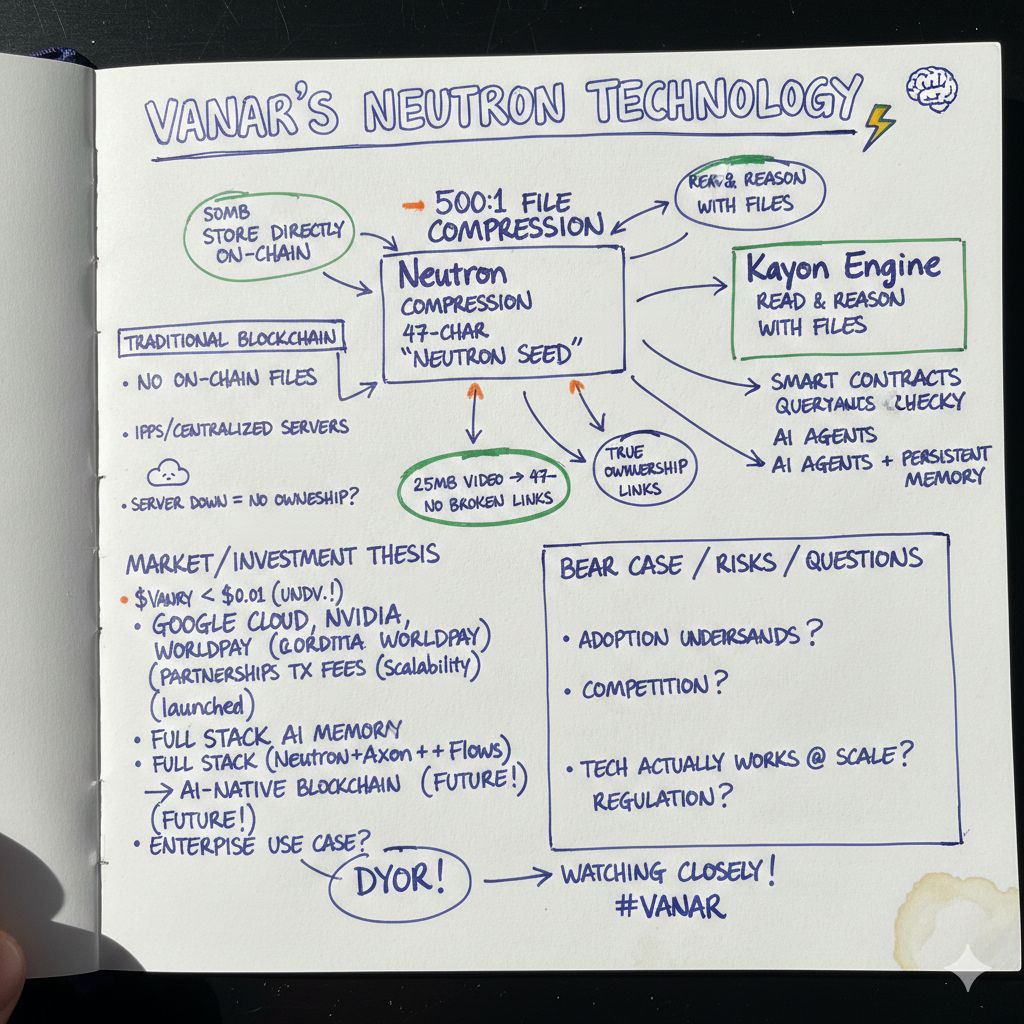 VANAR'S NEUTRON TECHNOLOGY
50MB
STORE DIRECTLY
ON-CHAIN
500:1 FILE
COMPRESSION
& REASON
WITH FILES
Neutron
COMPRESSION
47-CHAR
"NEUTRON SEED"
Kayon Engine
READ & REASON
WITH FILES
TRADITIONAL BLOCKCHAIN
• NO ON-CHAIN FILES
• IPPS/CENTRALIZED SERVERS
• SERVER DOWN = NO OWNESHIP?
SMART CONTRACTS
AI AGENTS
AI AGENTS + PERSISTENT
MEMORY
25MB VIDEO → 47-
NO BROKEN LINKS
TRUE
OWNERSHIP
LINKS
MARKET/INVESTMENT THESIS
• $VANRY < $0.01 (UNDV.!)
• GOOGLE CLOUD, NVIDIA,
WORLDPAY WORLDPAY)
(PARTNERSHIPS TX FEES (Scalability)
(launched)
• FULL STACK AI MEMORY
• FULL STACK (Neutron+Axon++Flows)
→ AI-NATIVE BLOCKCHAIN (FUTURE!)
(FUTURE!)
• ENTERPISE USE CASE?
DYOR!
BEAR CASE / RISKS / QUESTIONS
• ADOPTION ?
• COMPETITION?
• TECH ACTUALLY WORKS @ SCALE?
REGULATION?
→ WATCHING CLOSELY!
#VANAR